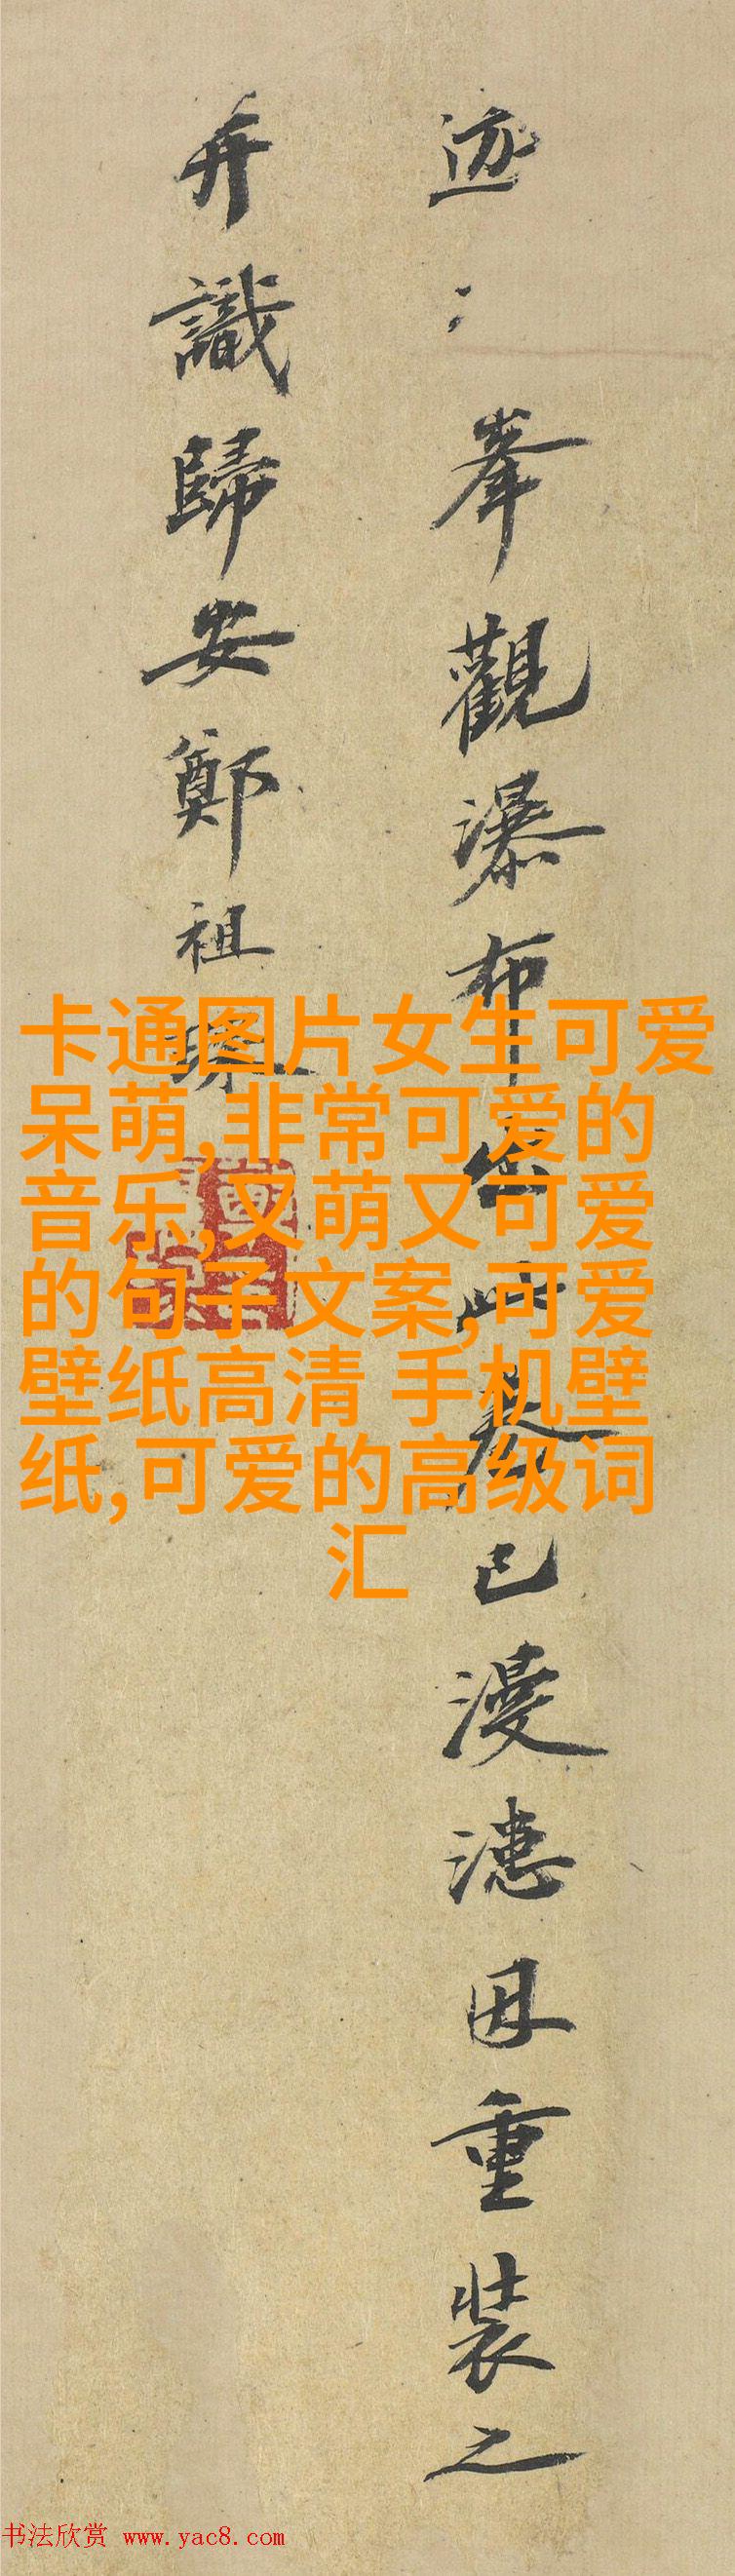 迹〻峯觀瀑布出此卷已漫漶因重裝之
并識歸安鄭祖琛
卡通图片女生可爱
呆萌,非常可爱的
音乐,又萌又可爱
的句子文案,可爱
壁纸高清 手机壁
纸,可爱的高级词
汇
书法欣赏 www.yac8.com